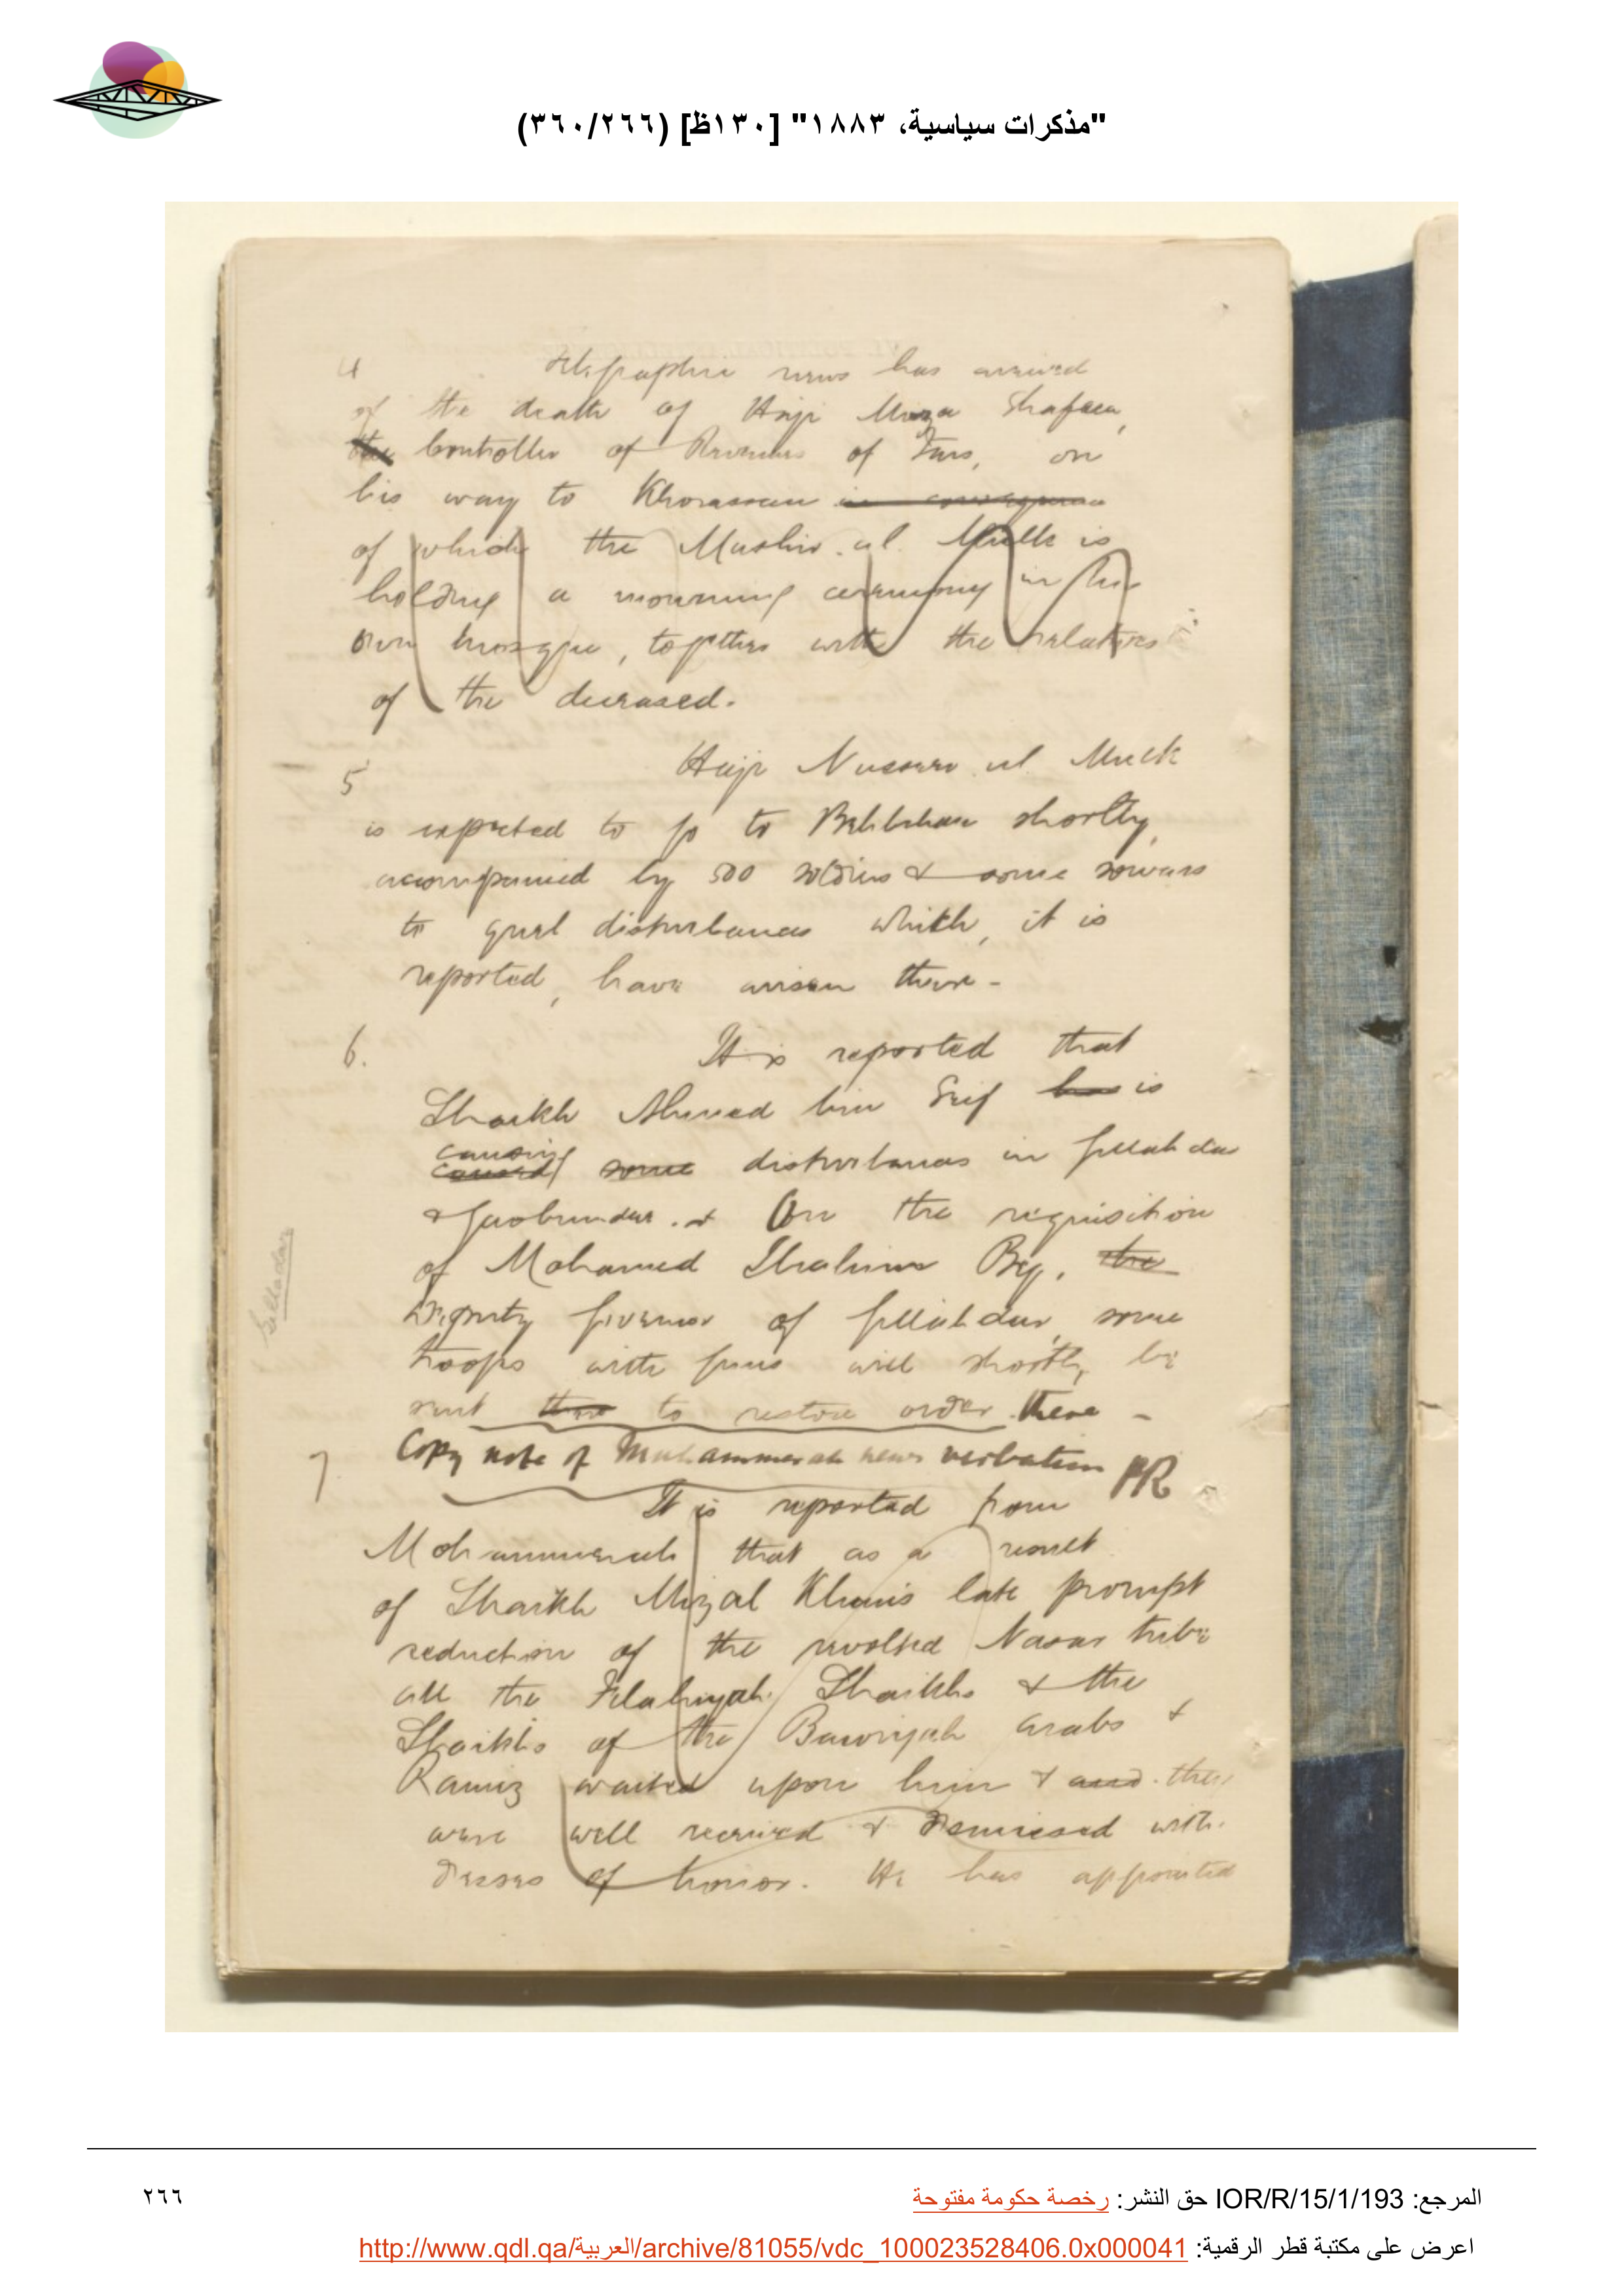 "مذكرات سياسية، ١٨٨٣" [١٣٠ظ] (٣٦٠/٢٦٦)
4 Telegraphic news has arrived
of the death of Haji Mirza Shafeea,
the Controller of Revenues of Fars, on
his way to Khorassan in consequence
of which the Mushir.ul.Mulk is
holding a mourning ceremony in his
own mosque, together with the relatives
of the deceased.
5 Haji Nusseer.ul.Mulk
is expected to go to Behbehan shortly,
accompanied by 500 soldiers & some sowars
to quel disturbances which, it is
reported, have arisen there -
6. It is reported that
Shaikh Ahmed bin Seif has is
causing
caused some disturbances in Gillahdar
& Gaobundar. & On the requisition
Gilladar
of Mohamed Ibrahim Beg, the
Deputy Governor of Gillahdar, some
troops with guns will shortly be
sent there to restore order there -
7 Copy note of Muhammerah news verbatim PR
It is reported from
Mohammerah that as a result
of Shaikh Mizal Khan's late prompt
reduction of the revolted Nasar tribe
all the Felahiyah Shaikhs & the
Shaikhs of the Bawiyah Arabs &
Ramiz waited upon him & and they
were well received & dismissed with
dresses of honor. He has appointed
المرجع: IOR/R/15/1/193 حق النشر: رخصة حكومة مفتوحة
٢٦٦
اعرض على مكتبة قطر الرقمية: http://www.qdl.qa/العربية/archive/81055/vdc_100023528406.0x000041